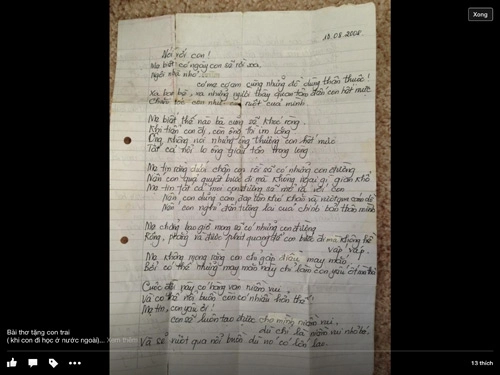 Xong
10.08.2008
Nói với con!
Mẹ biết có ngày con sẽ rời xa,
Ngôi nhà nhỏ
có mẹ cơ em cùng những đồ dùng thân thuộc!
Xa bạn bè, xa những người thầy quan tâm đến con hết mực
Chiều con như con ruột của mình.
Mẹ biết thế nào bà cũng sẽ khóc ròng.
Khi tiễn con đi, còn ông thì im lặng
Ông không nói nhưng ông thương con hết mực
Tất cả nỗi lo ông giấu tận trong lòng
Mẹ tin rằng dưới chân con rồi sẽ có những con đường
Nên con quả quyết bước đi mà không ngại gì gian khổ
Mẹ tin tất cả mọi con đường sẽ mở ra với con
Nên con dũng cảm đạp lên khó khăn và vượt qua cám dỗ
Nên con nghĩ đến tương lai của chính bản thân mình
Mẹ chẳng bao giờ mong sẽ có những con đường
Rộng, phẳng và được phát quang để con bước đi mà không hề
vấp váp.
Mẹ không mong rằng con chỉ gặp điều may mắn,
Bởi có thể chúng may mắn này chỉ làm con yếu ớt hơn thôi
Cuộc đời này có hàng vạn niềm vui
Và có thể nỗi buồn còn có nhiều hơn thế
Mẹ tin, con yêu ơi!
con sẽ luôn tạo được cho mình niềm vui.
dù chỉ là niềm vui nhỏ bé.
Và sẽ vượt qua nỗi buồn dù nó có lớn lao.
Bài thơ tặng con trai
( khi con đi học ở nước ngoài)... Xem thêm
13 thích